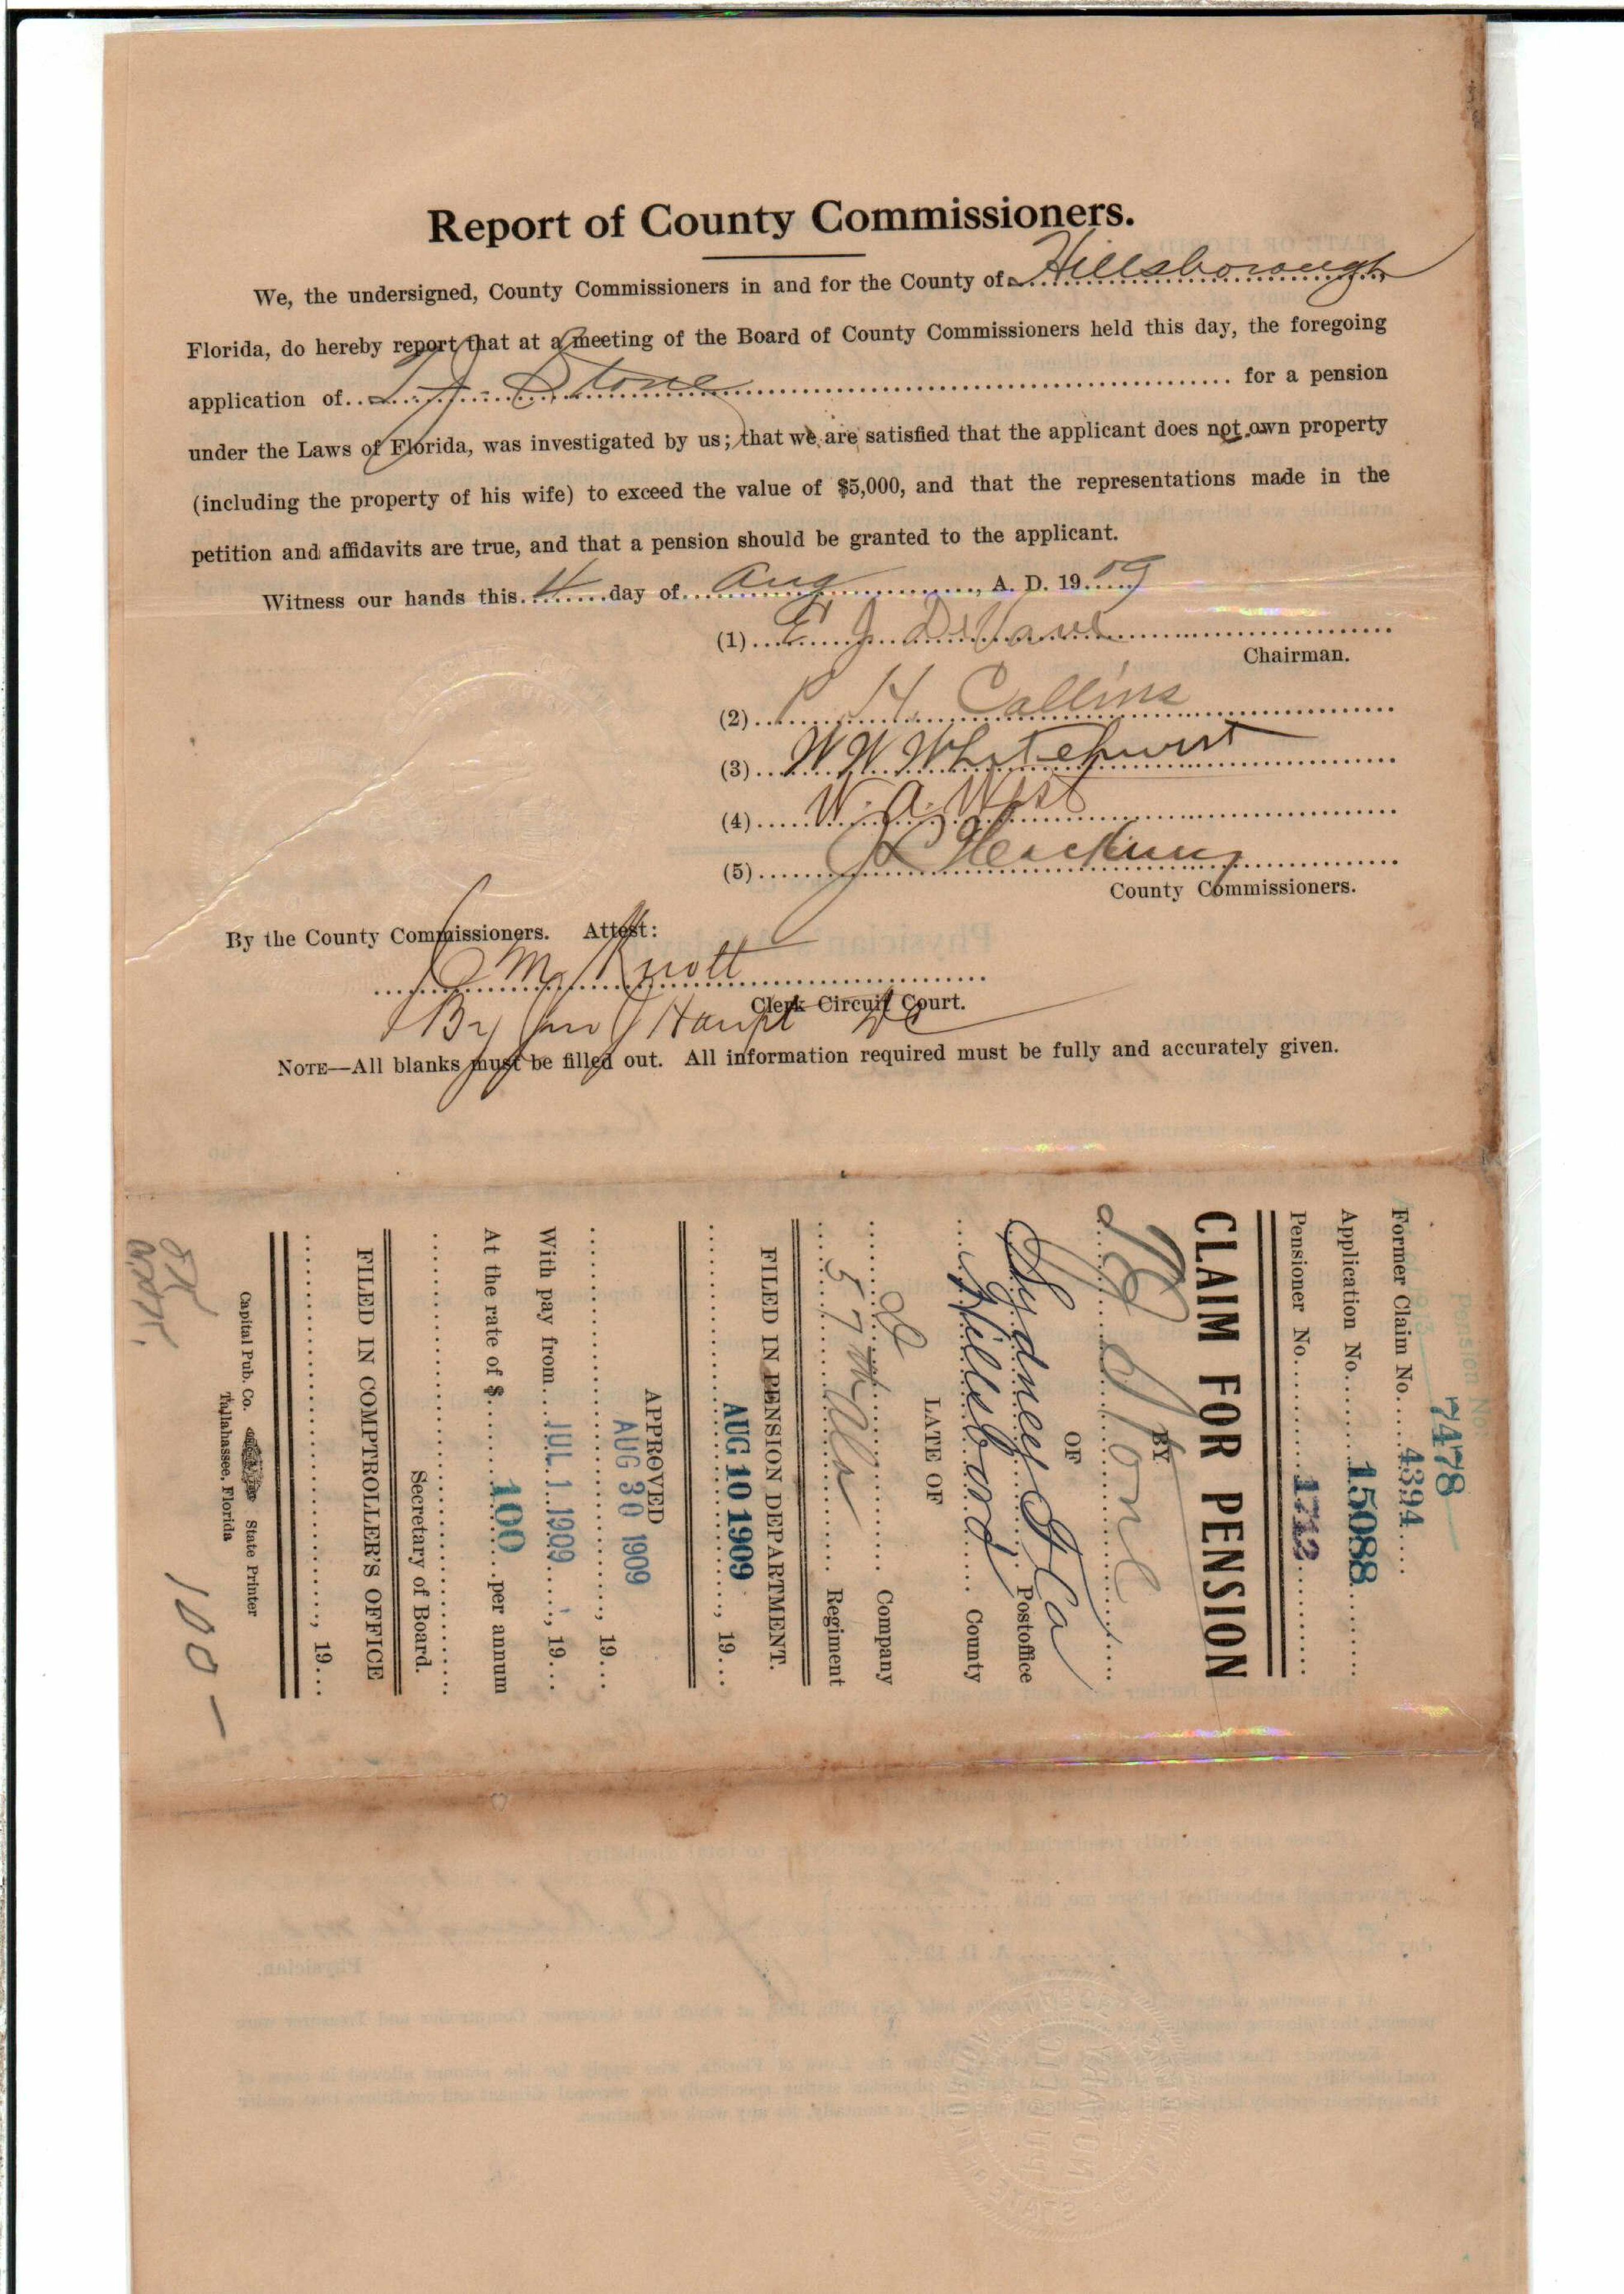 Report of County Commissioners.
We, the undersigned, County Commissioners in and for the County of Hillsborough
Florida, do hereby report that at a meeting of the Board of County Commissioners held this day, the foregoing
application of Stone for a pension
under the Laws of Florida, was investigated by us; that we are satisfied that the applicant does not own property
(including the property of his wife) to exceed the value of $5,000, and that the representations made in the
petition and affidavits are true, and that a pension should be granted to the applicant.
Witness our hands this 4 day of Aug, A. D. 1909
(1) E J DeVane
Chairman.
(2) P H. Collins
(3) W W Whitehurst
(4) W. A. West
(5)
County Commissioners.
By the County Commissioners. Attest:
Knott
Clerk Circuit Court.
By Jno Haupt DC
NOTE—All blanks must be filled out. All information required must be fully and accurately given.
Pension No.
7478
Former Claim No. 4394
Application No. 15088
Pensioner No. 1712
CLAIM FOR PENSION
BY
Stone
OF
Sydney Fla Postoffice
Hillsboro County
LATE OF
Company
57th Ala Regiment
FILED IN PENSION DEPARTMENT.
AUG 10 1909, 19
APPROVED
AUG 30 1909, 19
With pay from JUL 1 1909, 19
At the rate of $ 100 per annum
Secretary of Board.
FILED IN COMPTROLLER'S OFFICE
, 19
Capital Pub. Co. State Printer
Tallahassee, Florida
100 –